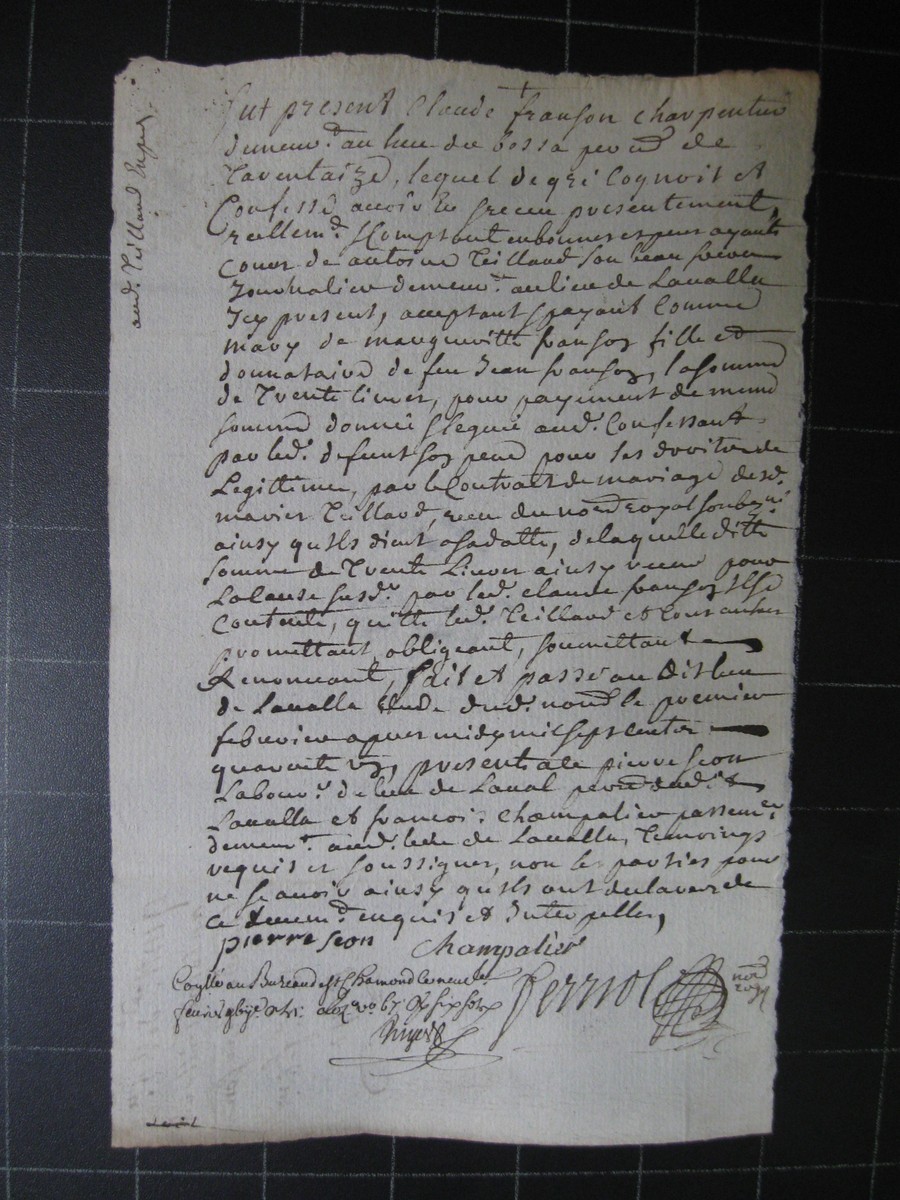 aud. Teilland Exped.
fut present Claude franson charpentier
demeur.t au lieu du bossa par.sse de
Tarentaize, lequel de gré Cognoit et
Confesse avoir Eu Receu presentement
reellem.t & Comptant en bonnes especes ayants
Cours de antoine Teilland son beau frere
Journalier demeur.t au lieu de Lavalla
Icy present, acceptant & payant Comme
mary de margueritte franson fille et
donnataire de feu Jean franson, la somme
de Trente livres, pour payement de meme
somme donnée & leguée aud. Confessant
par led. deffunt son pere pour ses droits de
Legittime, par le Contrat de mariage desd.
mariés Teilland, receu du no.re royal soubz.né
ainsy qu'ils dient sa datte, de laquelle ditte
somme de Trente Livres ainsy receue pour
La Cause susd.e par led. claude franson Il se
Contente, quitte led. Teilland et tous autres
promettant, obligeant, soumettant
Renonceant, fait et passé au dit lieu
de Lavalla Etude dud. no.re le premier
febvrier apres midy mil sept cents
quarante, presents pierre seon
Labour.r de lieu de Laval par.sse dud.
Lavalla et francois champalier passem.er
demeur.t aud. lieu de Lavalla, Temoings
requis et soussignes, non les parties pour
ne scavoir ainsy qu'ils ont declaré de
ce deuem.t enquis et Interpellés,
pierre seon champalier
Con.llé au Bureau de St Chamond le neuf
fevrier
ferriol no.re royal